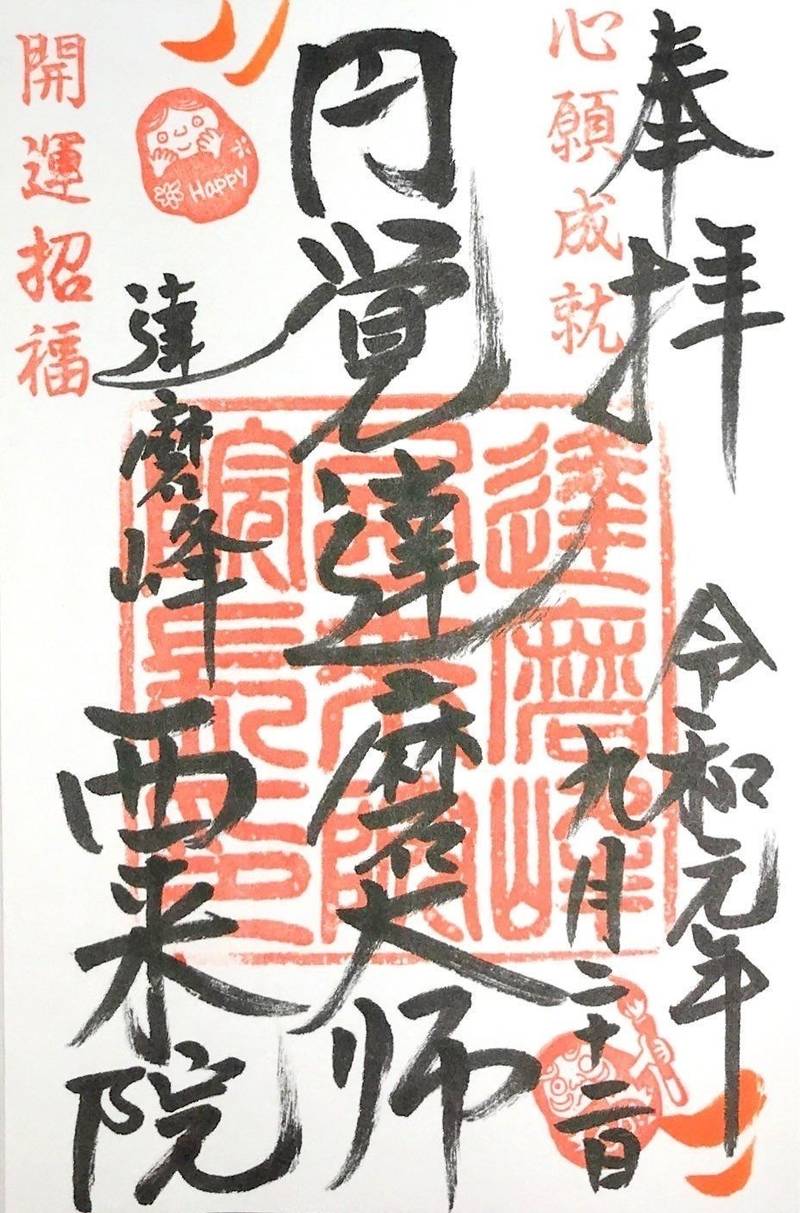 奉拝
心願成就
令和元年
九月二十二日
円覚達磨大師
達磨峰
西来院
開運招福
Happy
達磨峰
西来院